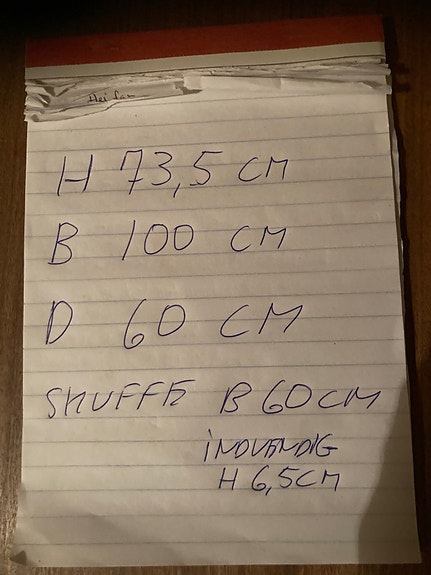 Hei
H 73,5 CM
B 100 CM
D 60 CM
SKUFFE B 60 CM
INDVENDIG
H 6,5 CM